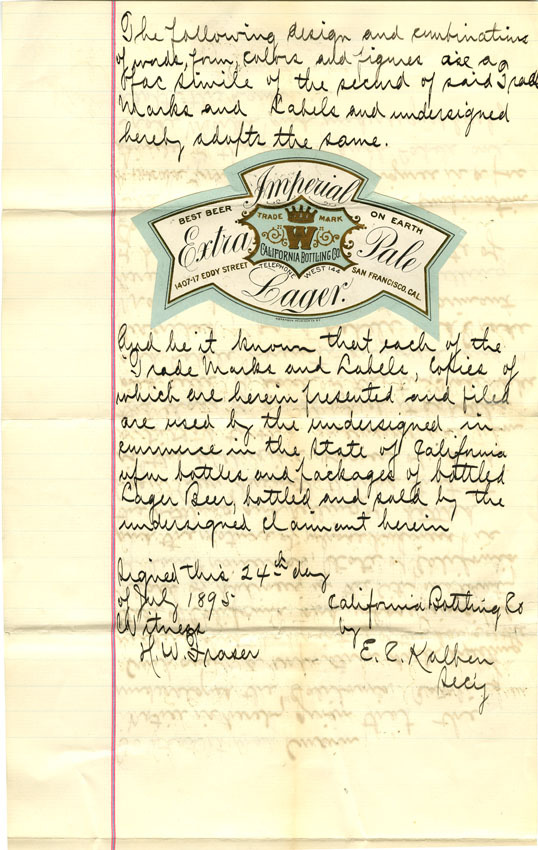 The following design and combinations
of words, form, colors and figures are a
fac simile of the record of said Trade
Marks and Labels and undersigned
hereby adopts the same.
Imperial
BEST BEER
TRADE MARK
ON EARTH
Extra
W
Pale
CALIFORNIA BOTTLING CO
1407-17 EDDY STREET
TELEPHONE WEST 144
SAN FRANCISCO, CAL.
Lager.
And be it known that each of the
Trade Marks and Labels, Copies of
which are herein presented and filed
are used by the undersigned in
commerce in the State of California
upon bottles and packages of bottled
Lager Beer, bottled and sold by the
undersigned claimant herein
Signed this 24th day
of July 1895
California Bottling Co
Witness
by
H. W. Fraser
E. C. Kalben
Secy